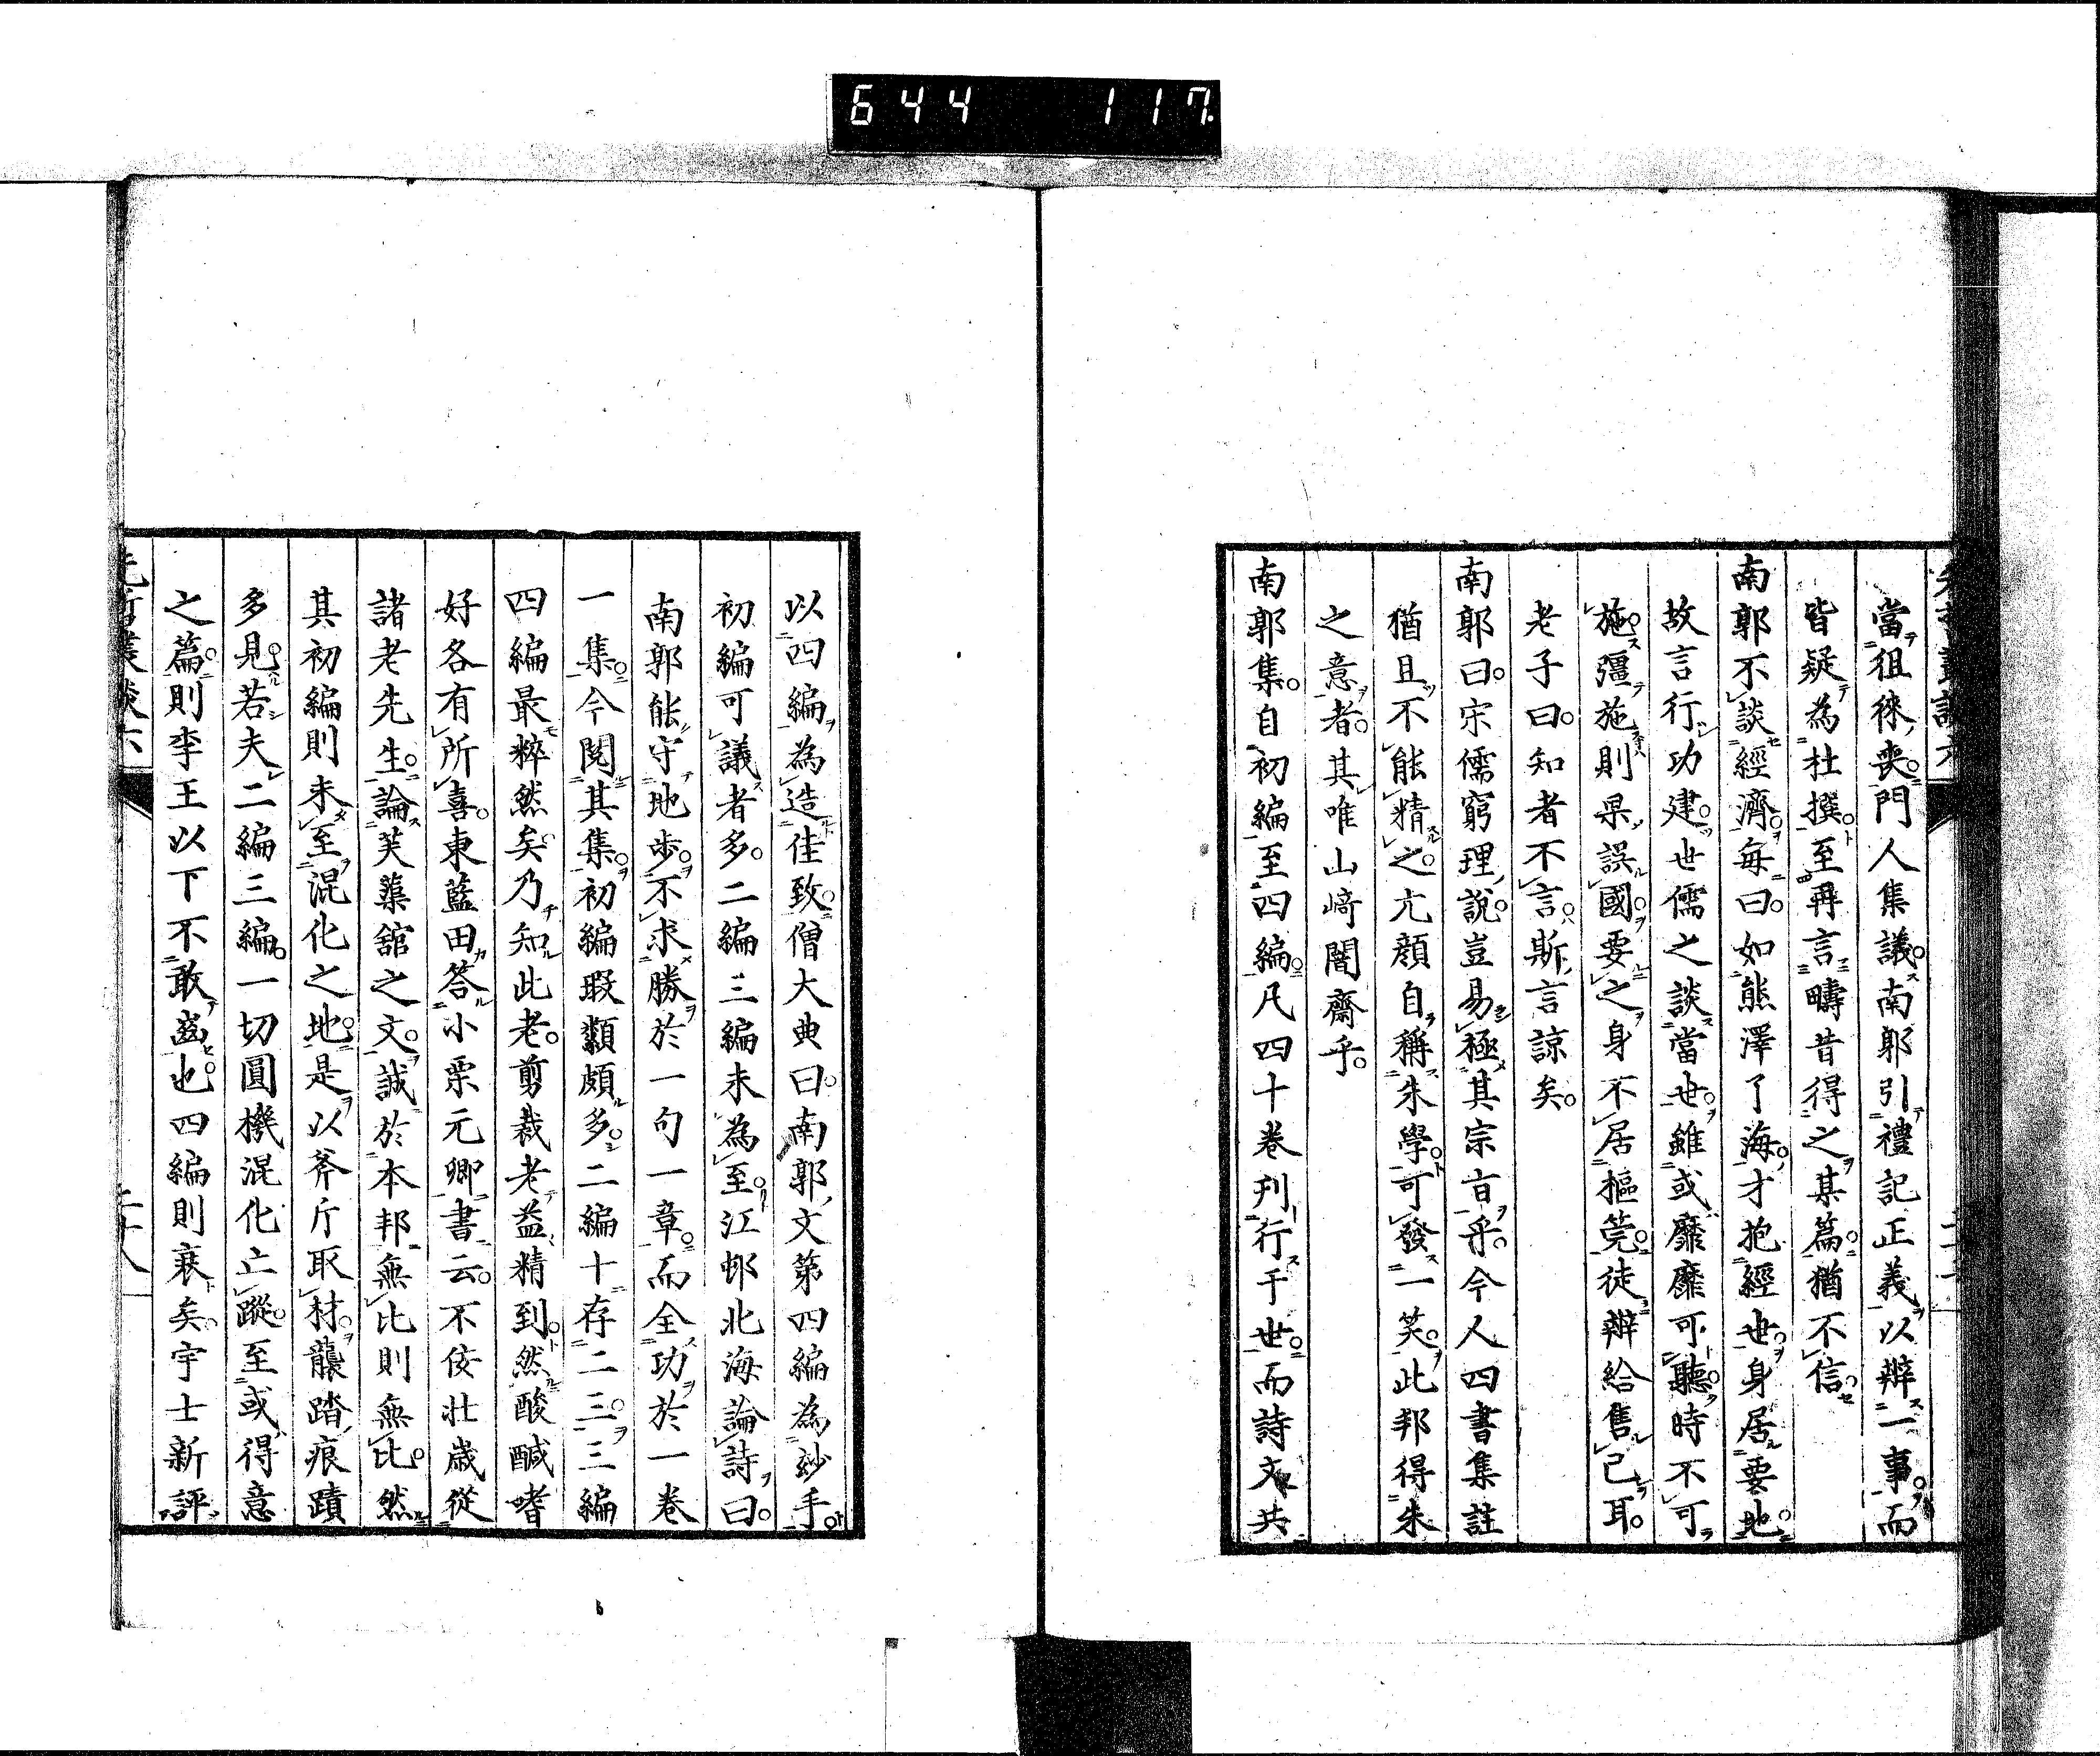 644 117
當徂徠喪門人集議南郭引禮記正義以辨一事而
皆疑為杜撰至再言疇昔得之某篇猶不信
南郭不談經濟每曰如熊澤了海才抱經世身居要地
故言行功建世儒之談當世雖或靡靡可聽時不可
施彊施則果誤國要之身不居樞筦徒辨給售己耳
老子曰知者不言斯言諒矣
南郭曰宋儒窮理說豈易極其宗旨乎今人四書集註
猶且不能精之亢顔自稱朱學可發一笑此邦得朱
之意者其唯山﨑闇齋乎
南郭集自初編至四編凡四十卷刋行于世而詩文共
以四編為造佳致僧大典曰南郭文第四編為玅手
初編可議者多二編三編未為至江邨北海論詩曰
南郭能守地步不求勝於一句一章而全功於一卷
一集今閱其集初編瑕纇頗多二編十存二三三編
四編最粹然矣乃知此老剪裁老益精到然酸醎嗜
好各有所喜東藍田答小栗元卿書云不佞壯歲從
諸老先生論芙蕖舘之文誠於本邦無比則無比然
其初編則未至混化之地是以斧斤取材襲踏痕蹟
多見若夫二編三編一切圓機混化亡蹤至或得意
之篇則李王以下不敢齒也四編則衰矣宇士新評
先哲叢談六